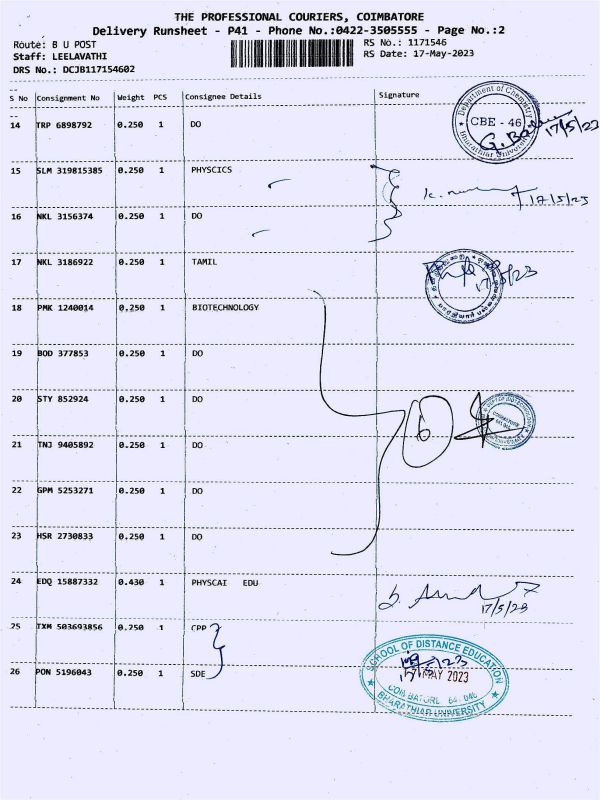 THE PROFESSIONAL COURIERS, COIMBATORE
Delivery Runsheet - P41 - Phone No.:0422-3505555 - Page No.:2
Route: B U POST
RS No.: 1171546
Staff: LEELAVATHI
RS Date: 17-May-2023
DRS No.: DCJB117154602
S No Consignment No Weight PCS Consignee Details Signature
14 TRP 6898792 0.250 1 DO
Department of Chemistry
CBE - 46
Bharathiar University
17/5/23
15 SLM 319815385 0.250 1 PHYSCICS
17/5/23
16 NKL 3156374 0.250 1 DO
17 NKL 3186922 0.250 1 TAMIL
18 PMK 1240014 0.250 1 BIOTECHNOLOGY
19 BOD 377853 0.250 1 DO
20 STY 852924 0.250 1 DO
6
21 TNJ 9405892 0.250 1 DO
22 GPM 5253271 0.250 1 DO
23 HSR 2730833 0.250 1 DO
24 EDQ 15887332 0.430 1 PHYSCAI EDU
17/5/23
25 TXM 503693856 0.250 1 CPP
26 PON 5196043 0.250 1 SDE
SCHOOL OF DISTANCE EDUCATION
MAY 2023
BHARATHIAR UNIVERSITY